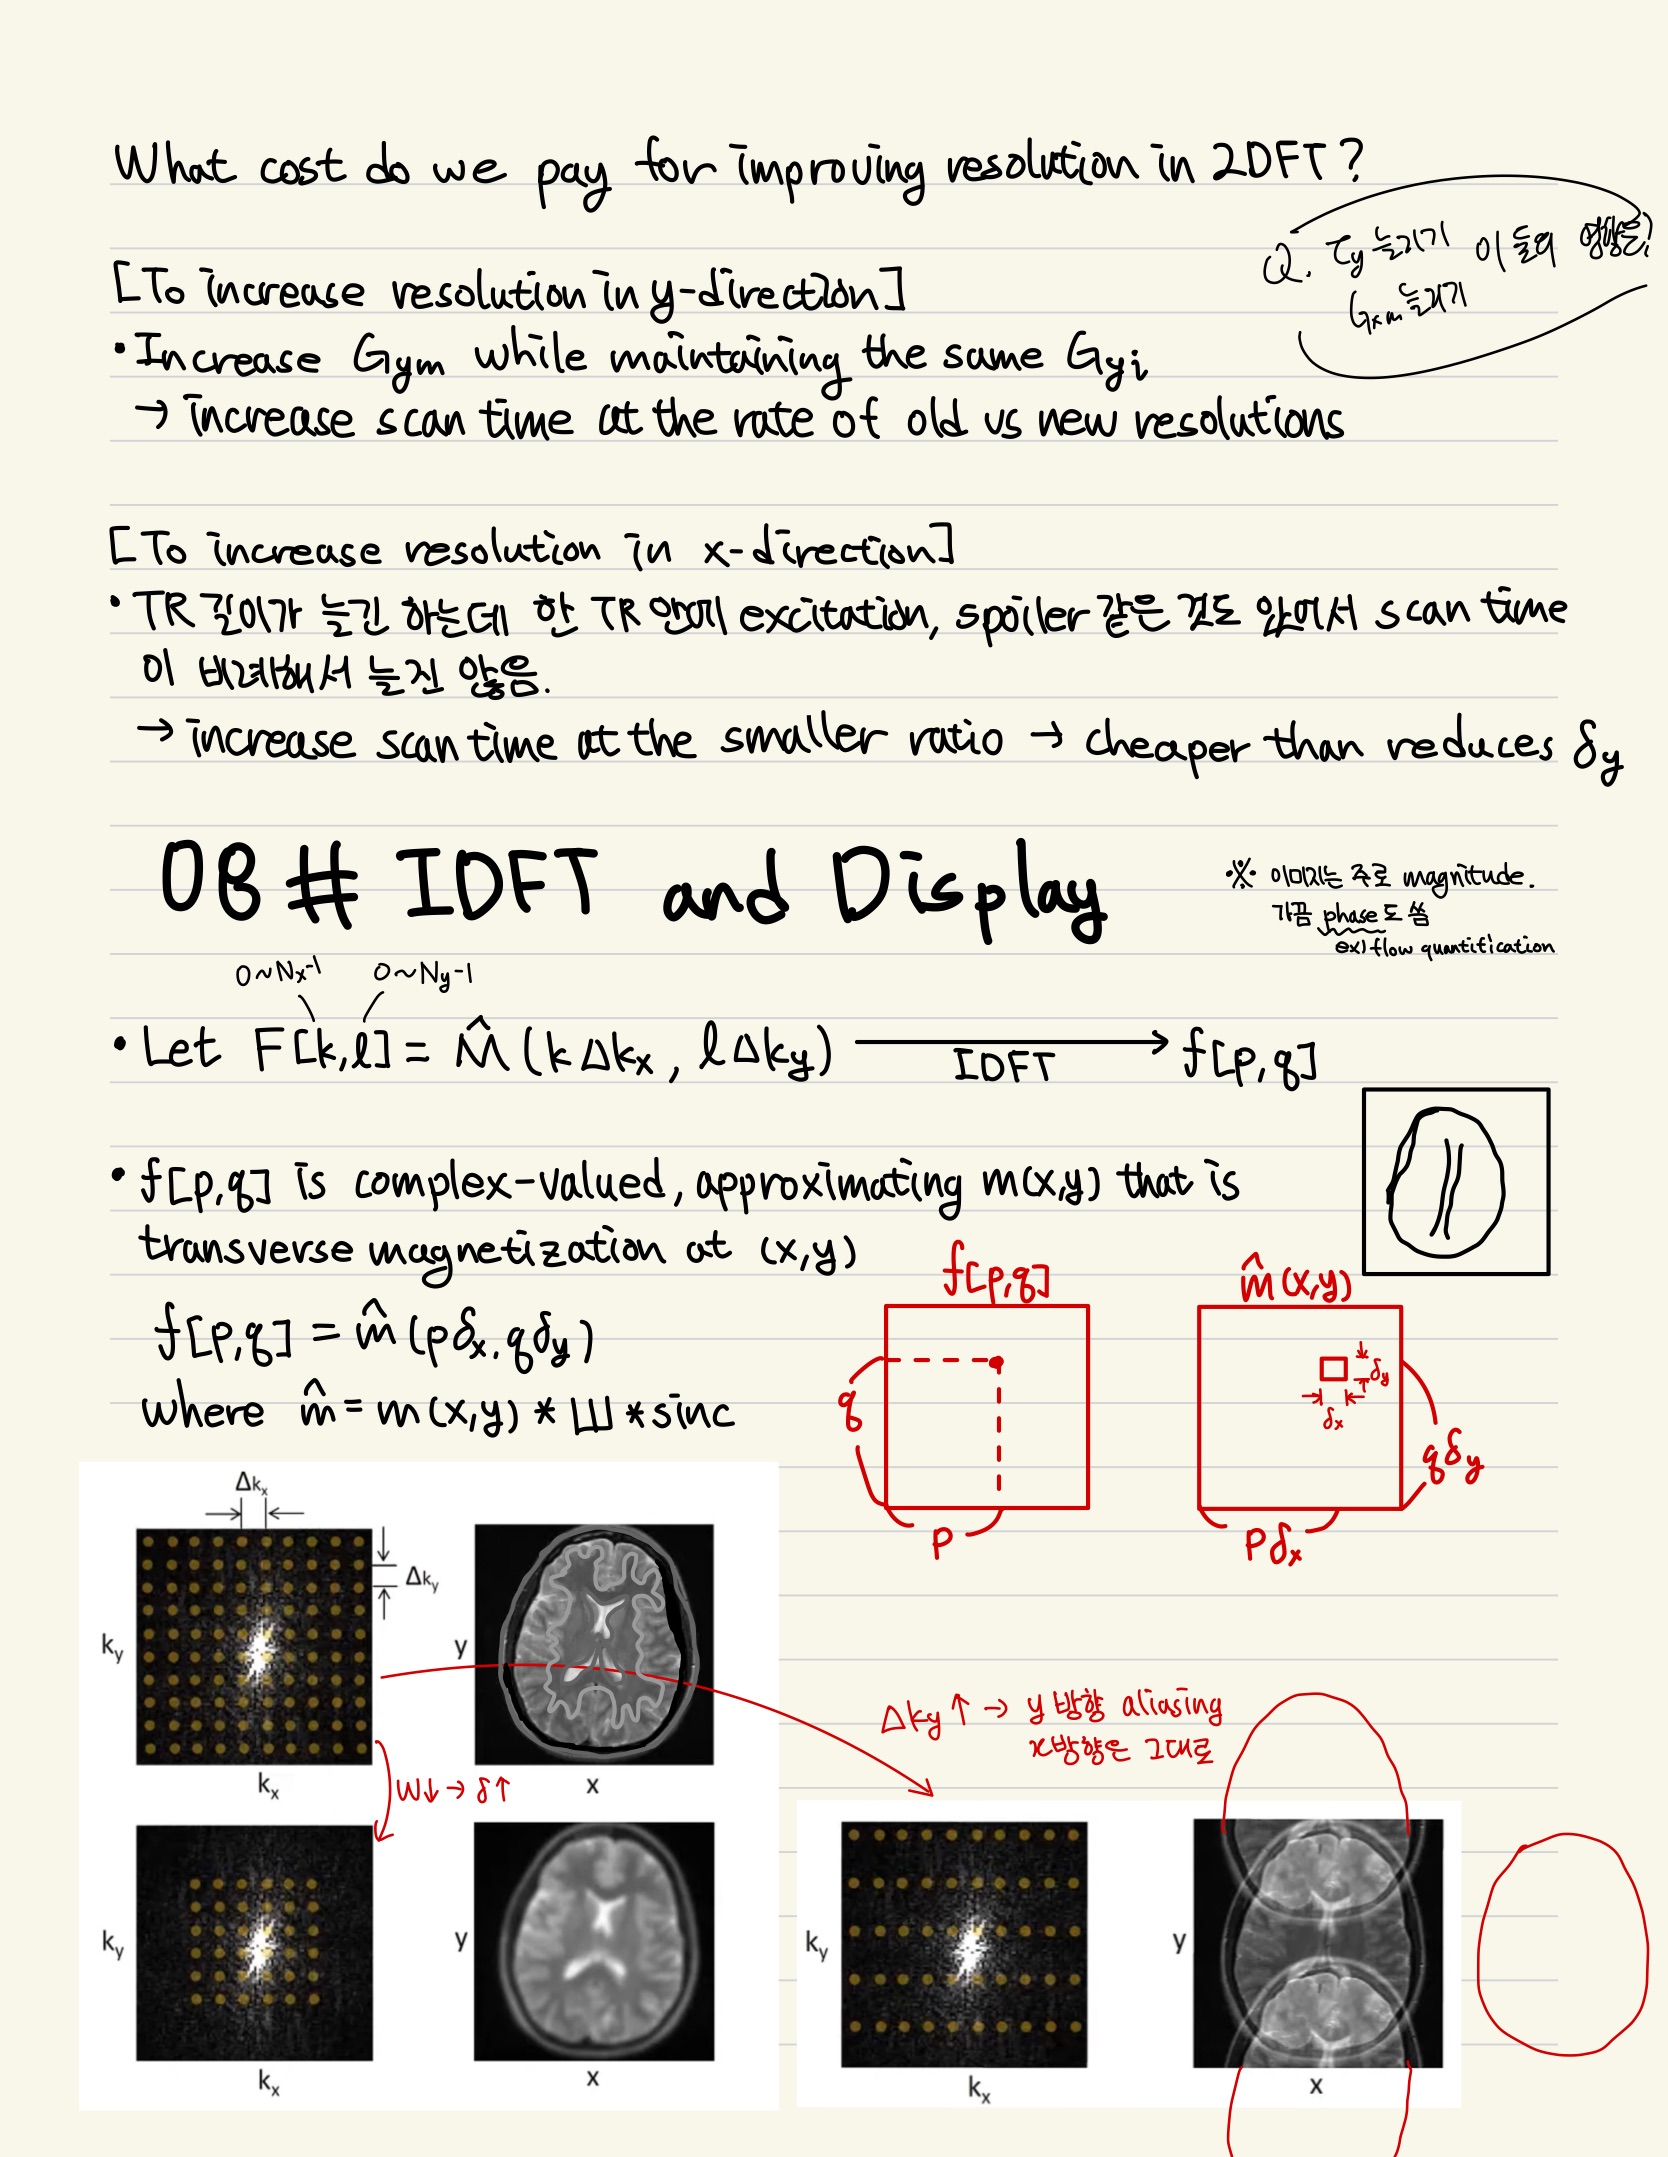 What cost do we pay for improving resolution in 2DFT?
Q. τy 늘리기 이 둘의 영향은?
Gxm 늘리기
[To increase resolution in y-direction]
• Increase Gym while maintaining the same Gyi
→ increase scan time at the rate of old vs new resolutions
[To increase resolution in x-direction]
• TR 길이가 늘긴 하는데 한 TR 안에 excitation, spoiler 같은 것도 있어서 scan time
이 비례해서 늘진 않음.
→ increase scan time at the smaller ratio → cheaper than reduces δy
08# IDFT and Display
※ 이미지는 주로 magnitude.
가끔 phase도 씀
ex) flow quantification
0~Nx-1 0~Ny-1
• Let F[k,l] = M̂(kΔkx, lΔky) IDFT → f[p,q]
• f[p,q] is complex-valued, approximating m(x,y) that is
transverse magnetization at (x,y)
f[p,q] = m̂(pδx, qδy)
where m̂ = m(x,y) * Ш * sinc
f[p,q]
q
p
m̂(x,y)
δy
δx
qδy
pδx
Δkx
Δky
ky
kx
y
x
W↓ → δ↑
ky
kx
y
x
Δky↑ → y방향 aliasing
x방향은 그대로
ky
kx
y
x